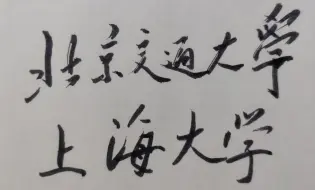 北京交通大學
上海大学